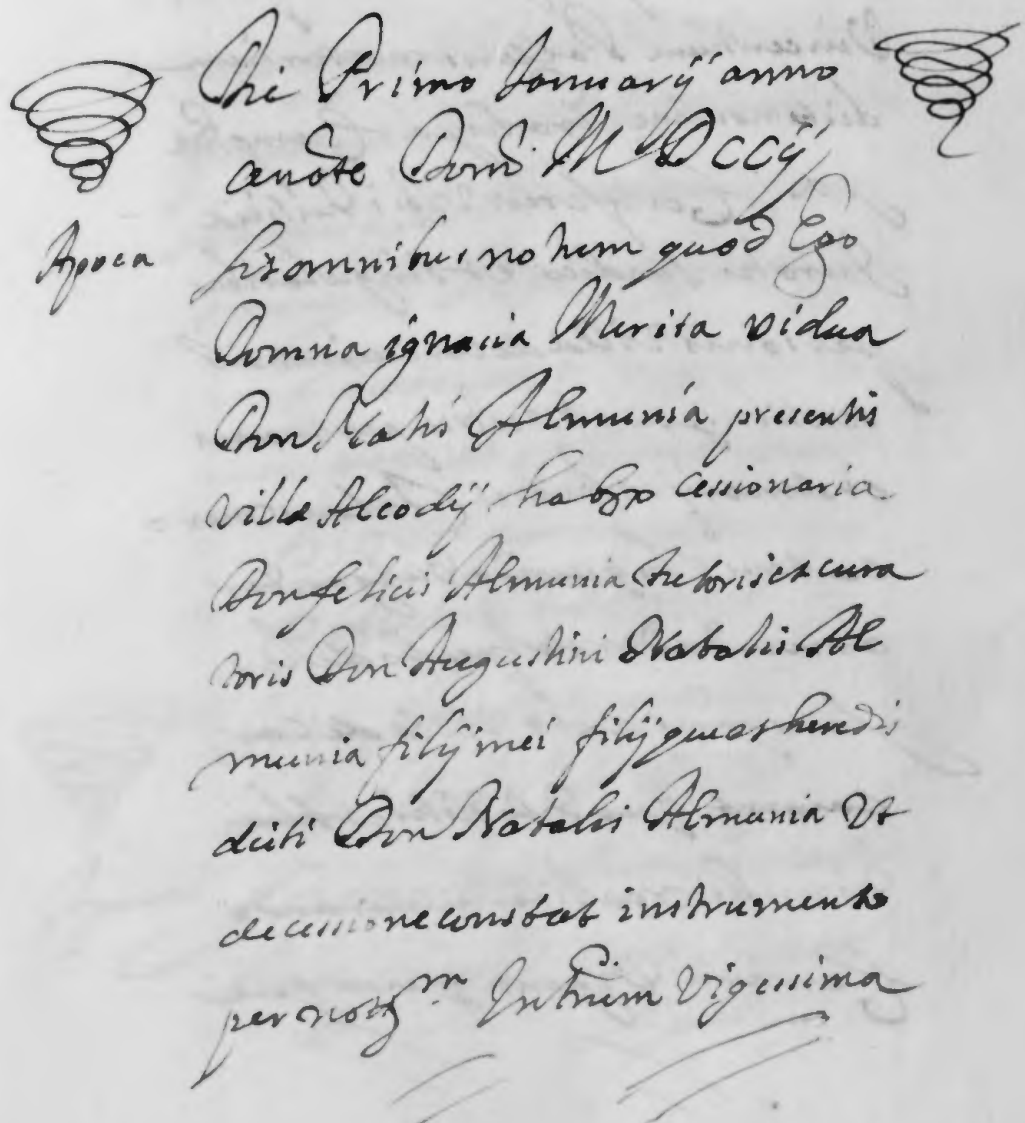 Die Primo Januarij anno
a note Dom. M DCCij
Apoca
Sit omnibus notum quod Ego
Domna ignacia Merita vidua
Don Natalis Almunia presentis
villæ Alcodij habzx cessionaria
Don felicis Almunia tutoris et cura
toris Don Augustini Natalis Al
munia filij mei filij que et heredis
dicti Don Natalis Almunia Vt
de cessione constat instrumento
per not m Infrum Vigessima